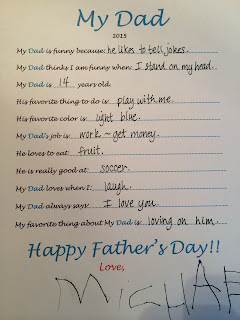 My Dad
2015
My Dad is funny because: he likes to tell jokes.
My Dad thinks I am funny when: I stand on my head.
My Dad is 14 years old.
His favorite thing to do is play with me.
His favorite color is light blue.
My Dad's job is work ~ get money.
He loves to eat fruit.
He is really good at soccer.
My Dad loves when I: laugh.
My Dad always says: I love you.
My favorite thing about My Dad is loving on him.
Happy Father's Day!!
Love,
MICHAE